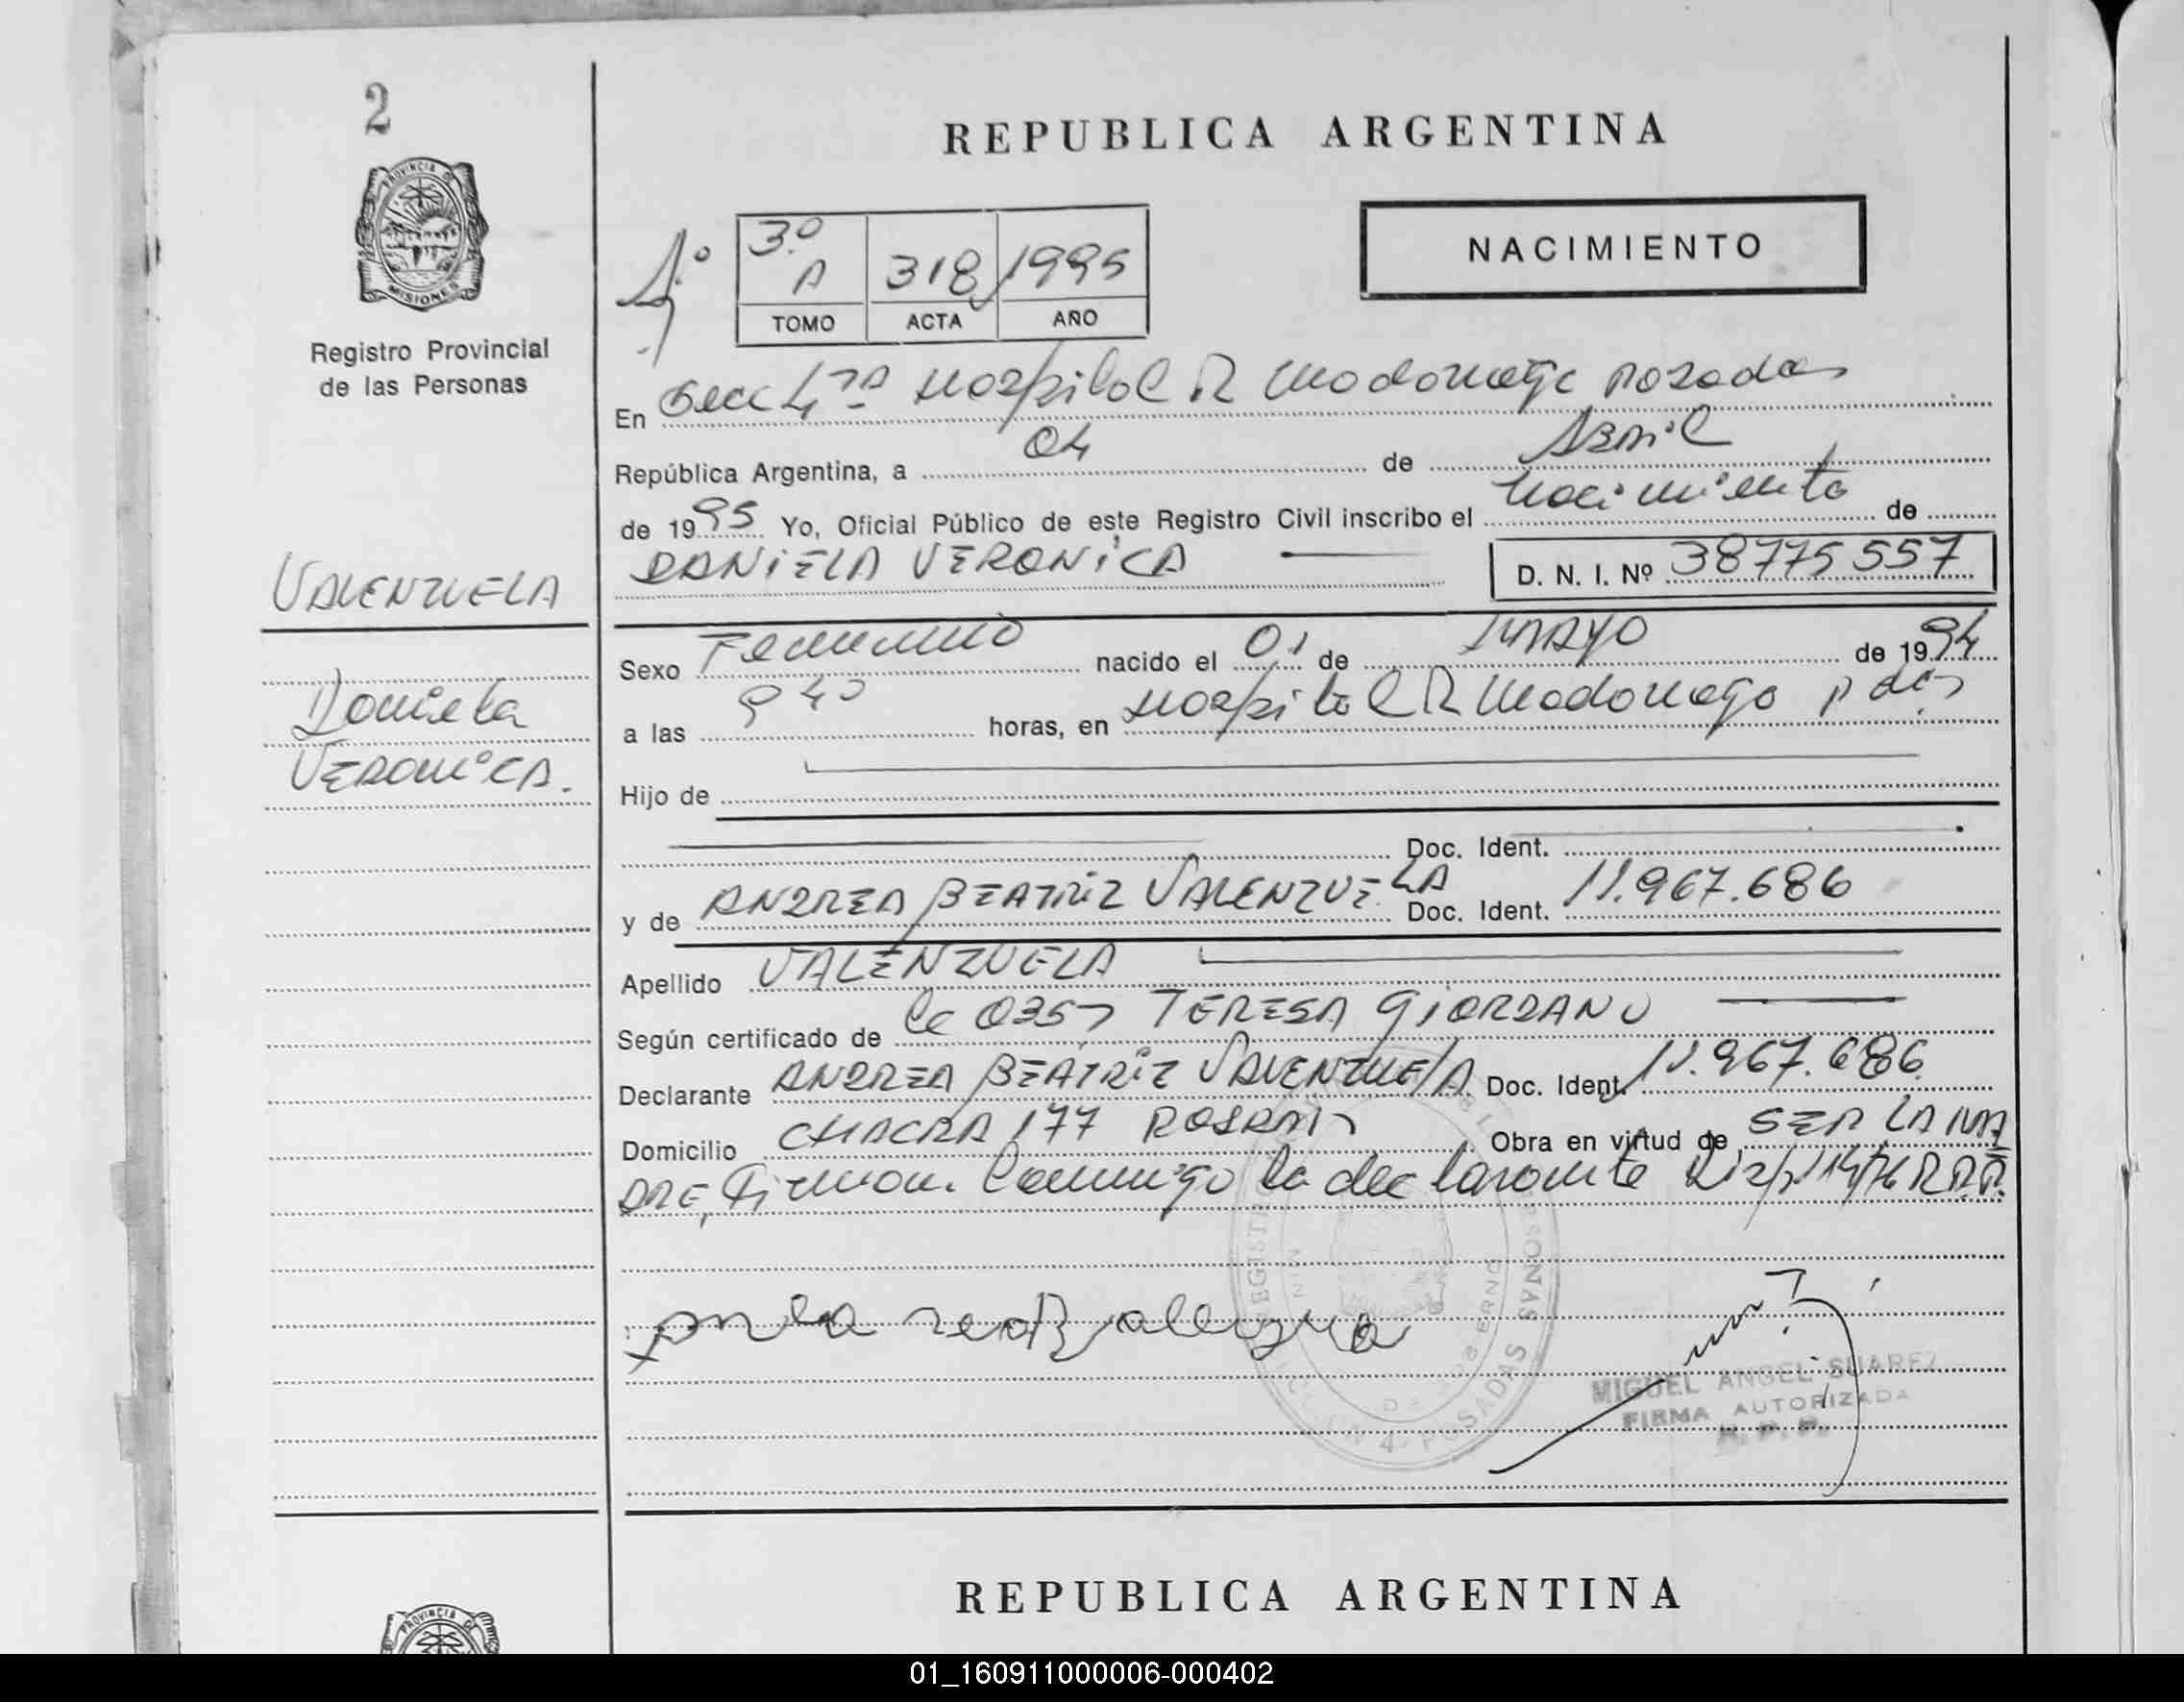 2
REPUBLICA ARGENTINA
PROVINCIA DE
MISIONES
Registro Provincial
de las Personas
NACIMIENTO
3º A 318 1995
TOMO ACTA AÑO
En Secc 4ta Hospital R Madariaga Posadas
República Argentina, a 04 de Abril
de 1995 Yo, Oficial Público de este Registro Civil inscribo el Nacimiento de
DANIELA VERONICA D. N. I. Nº 38775557
VALENZUELA
Daniela
VERONICA.
Sexo Femenino nacido el 01 de MAYO de 1994
a las 9 40 horas, en Hospital R Madariaga pdas
Hijo de
Doc. Ident.
y de ANDREA BEATRIZ VALENZUELA Doc. Ident. 11.967.686
Apellido VALENZUELA
Según certificado de 0357 TERESA GIORDANO
Declarante ANDREA BEATRIZ VALENZUELA Doc. Ident. 11.967.686
Domicilio CHACRA 177 Obra en virtud de SER LA MA
DRE, Firman Conmigo la declarante
MIGUEL ANGEL SUAREZ
FIRMA AUTORIZADA
R. P. P.
REPUBLICA ARGENTINA
PROVINCIA
01_160911000006-000402